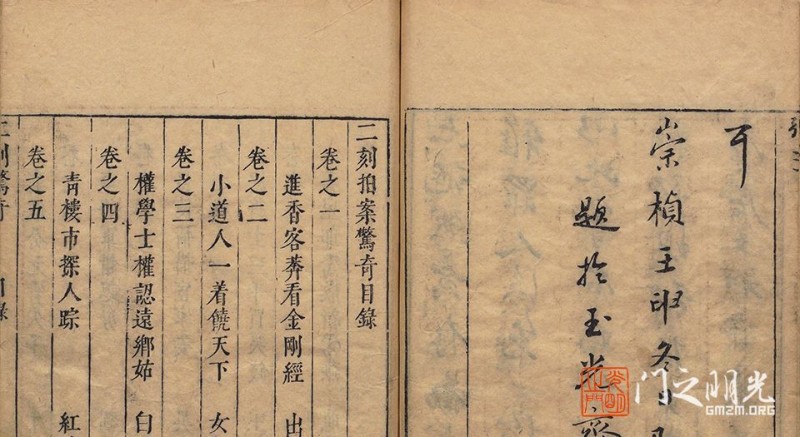 耳
崇禎壬申冬日
題於玉光齋
二刻拍案驚奇目錄
卷之一
進香客莽看金剛經 出
卷之二
小道人一着饒天下 女
卷之三
權學士權認遠鄉姑 白
卷之四
青樓市探人踪 紅
卷之五
门之明光
GMZM.ORG